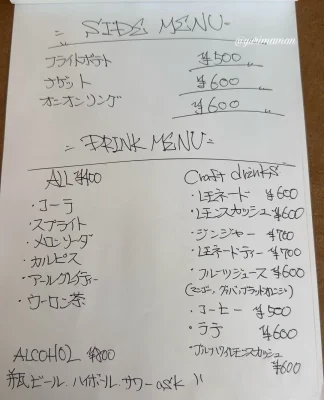 SIDE MENU
@yukimaman
フライドポテト ¥500
ナゲット ¥600
オニオンリング ¥600
DRINK MENU
ALL ¥400
・コーラ
・スプライト
・メロンソーダ
・カルピス
・アールグレイティー
・ウーロン茶
Craft drinks
・レモネード ¥600
・レモンスカッシュ ¥600
・ジンジャー ¥700
・レモネードティー ¥700
・フルーツジュース ¥600
(マンゴー、グァバ、ブラッドオレンジ)
・コーヒー ¥500
・ラテ ¥600
・ブルーハワイレモンスカッシュ ¥600
ALCOHOL ¥800
瓶ビール ハイボール サワー ask